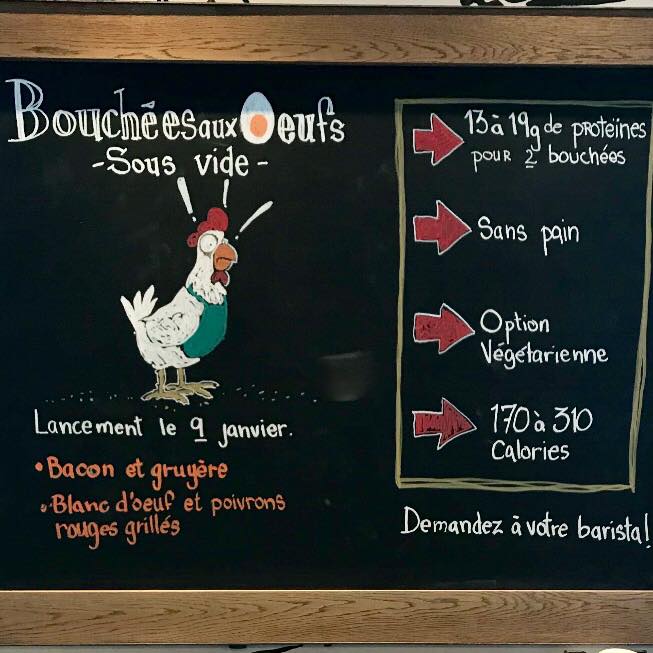 Bouchées aux Oeufs
-Sous vide-
Lancement le 9 janvier.
• Bacon et gruyère
• Blanc d'oeuf et poivrons
rouges grillés
13 à 19g de protëines
pour 2 bouchées
Sans pain
Option
Végétarienne
170 à 310
Calories
Demandez à votre barista!